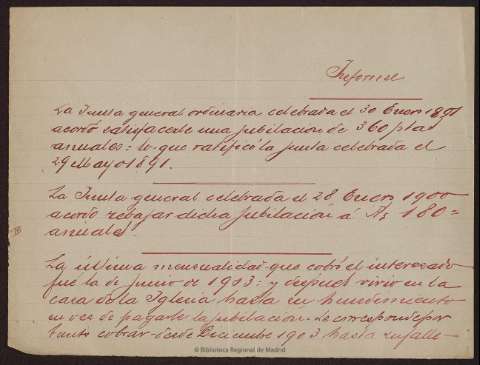 Informe
La Junta general ordinaria celebrada el 30 Enero 1891
acordó satisfacerle una jubilación de 360 ptas
anuales: lo que ratificó la Junta celebrada el
29 Mayo 1891.
La Junta general celebrada el 28 Enero 1900
acordó rebajar dicha jubilación á 180=
anuales.
La última mensualidad que cobró el interesado
fué la de junio de 1903: y después vivió en la
casa de la Iglesia hasta su hundimiento
en vez de pagarle la jubilación. Le corresponde por
tanto cobrar desde Diciembre 1903 hasta su falle-
© Biblioteca Regional de Madrid